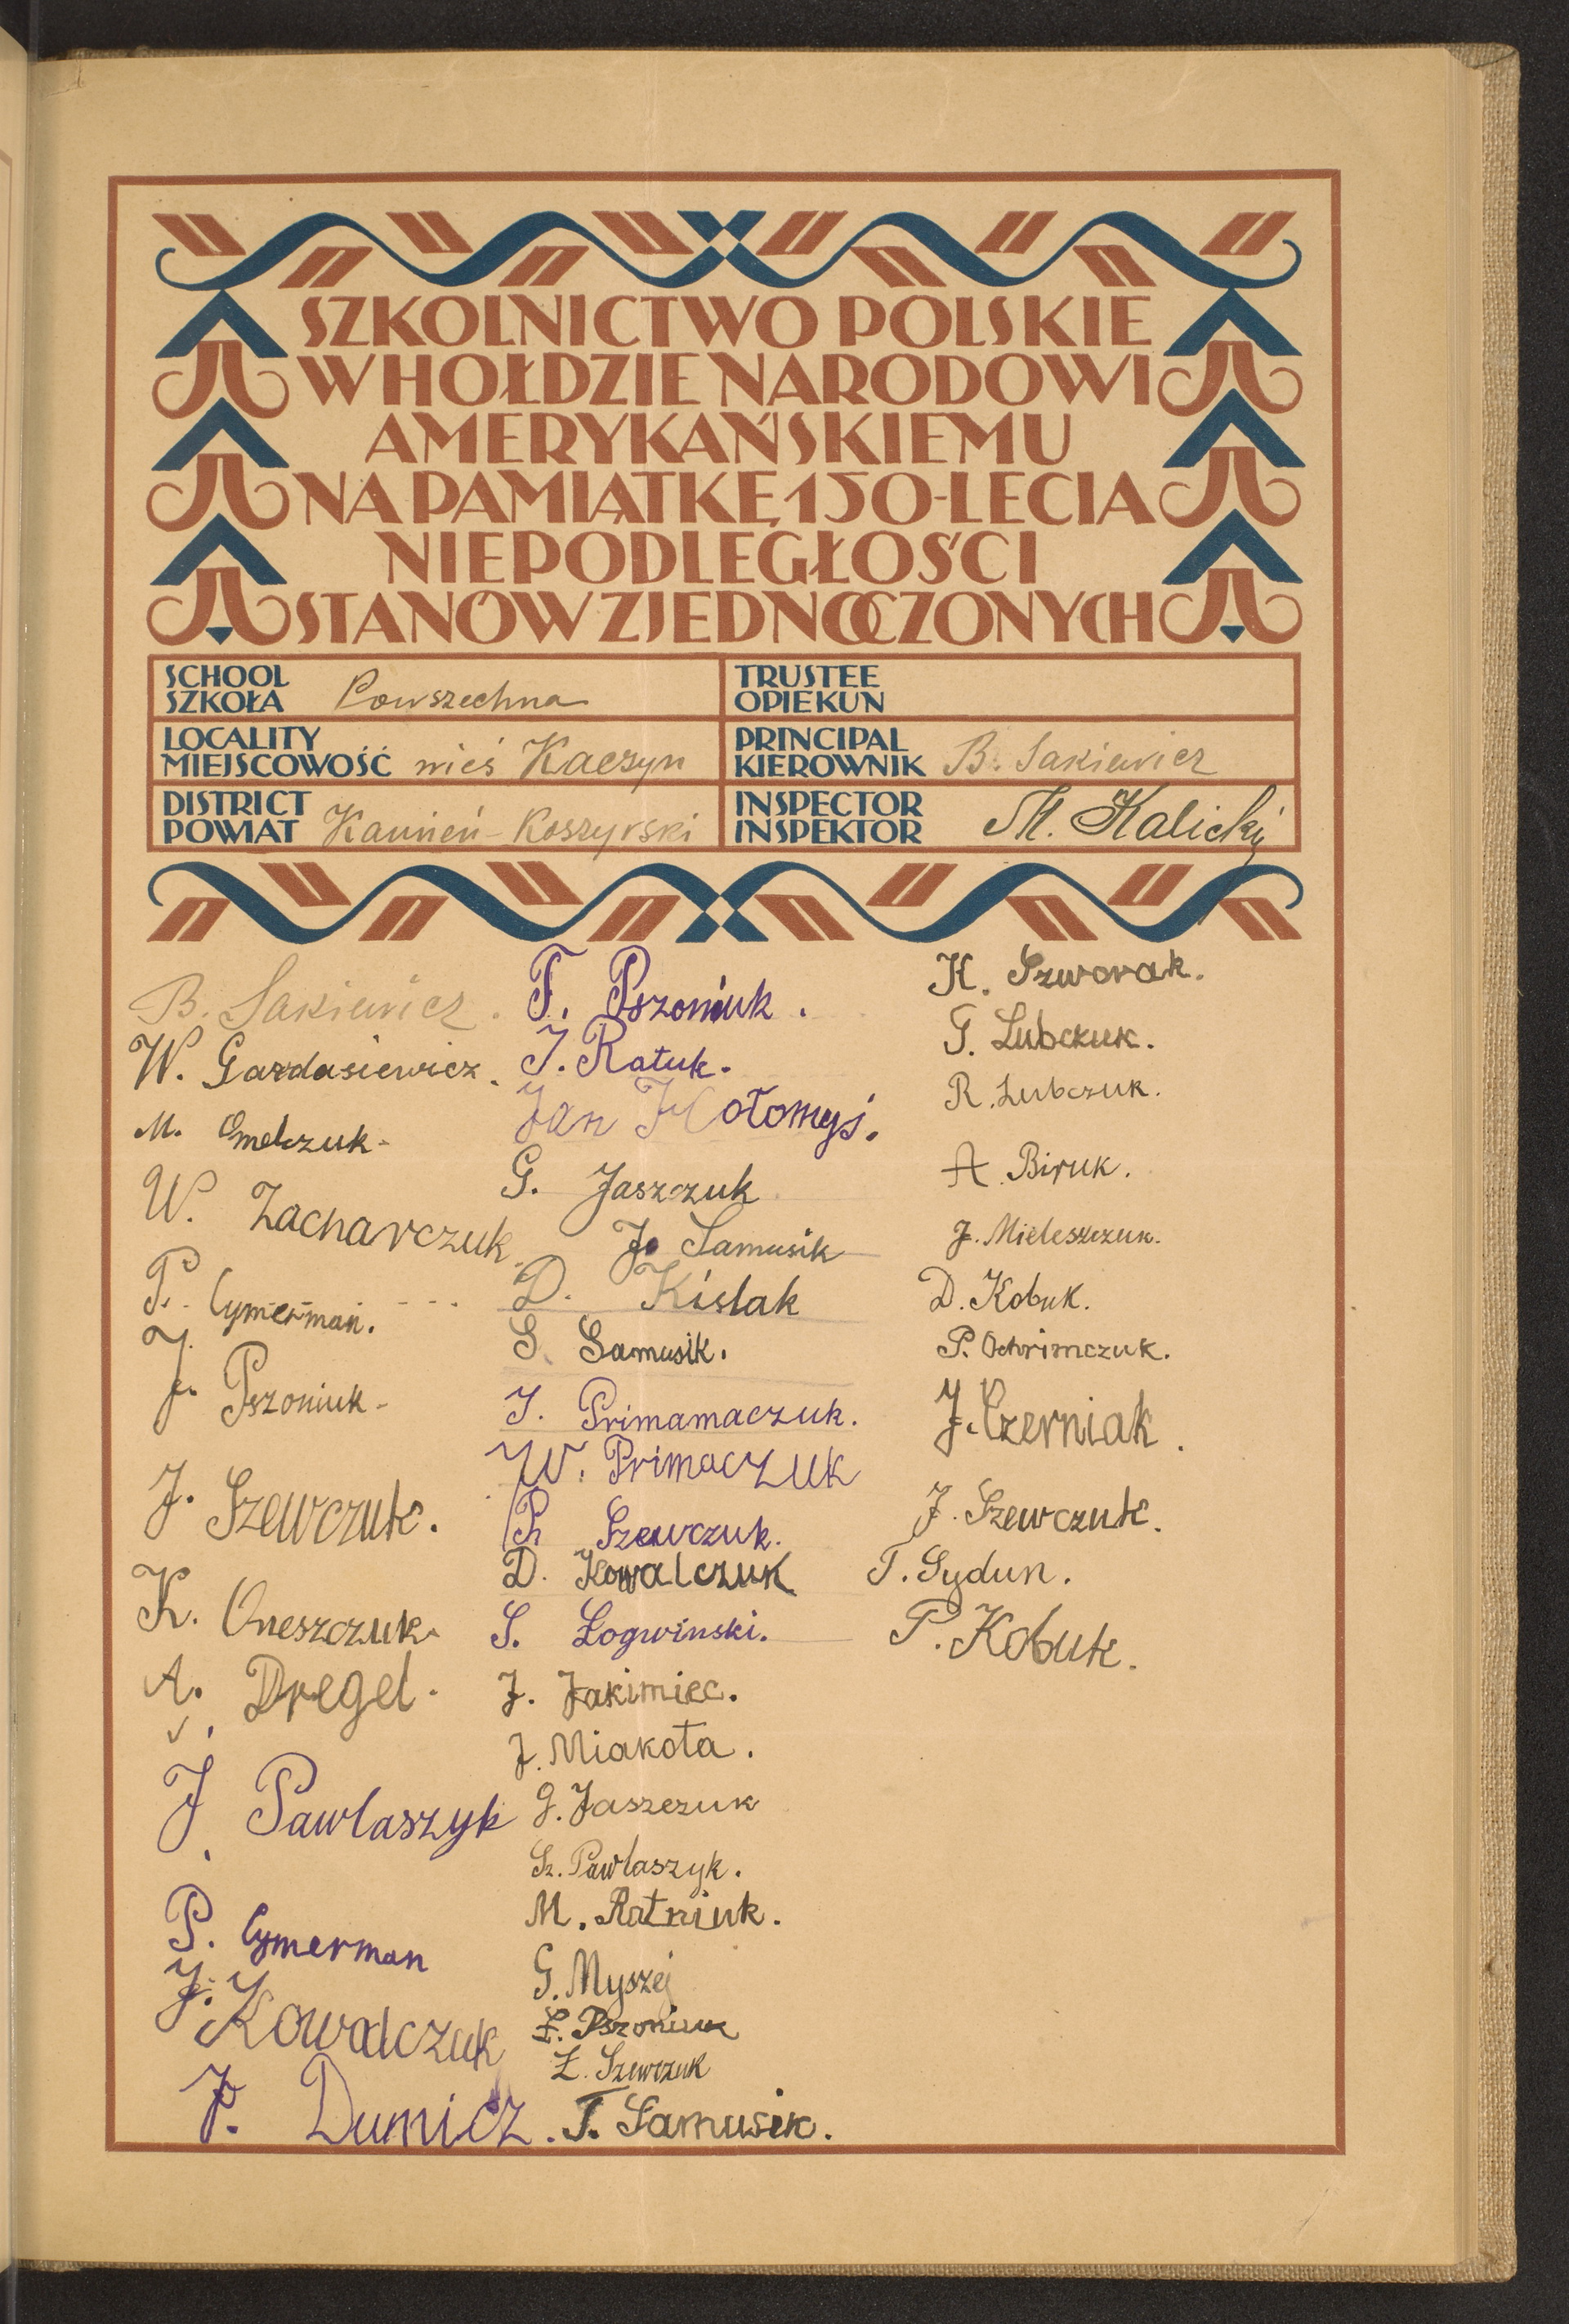 SZKOLNICTWO POLSKIE
W HOŁDZIE NARODOWI
AMERYKAŃSKIEMU
NA PAMIĄTKĘ 150-LECIA
NIEPODLEGŁOŚCI
STANÓW ZJEDNOCZONYCH
SCHOOL
SZKOŁA Powszechna
TRUSTEE
OPIEKUN
LOCALITY
MIEJSCOWOŚĆ wieś Kaczyn
PRINCIPAL
KIEROWNIK B. Sakiewicz
DISTRICT
POWIAT Kamień-Koszyrski
INSPECTOR
INSPEKTOR M. Kalicki
B. Sakiewicz.
W. Gazdasiewicz.
M. Omelczuk
W. Zacharczuk
P. Cymerman.
J. Pszoniuk
J. Szewczuk.
K. Oneszczuk
A. Dregel.
J Pawlaszyk
P. Cymerman
J. Kowalczuk
J. Dumicz.
F. Pszoniuk.
J. Ratuk.
Jan Hołomyj.
G. Jaszczuk
J. Samusik
D. Kislak
S. Samusik.
J. Primamaczuk.
W. Primaczuk
P. Szewczuk.
D. Kowalczuk
S. Łogwinski.
J. Jakimiec.
J. Miakota.
G. Jaszczuk
Sz. Pawlaszyk.
M. Ratniuk.
G. Myszej
Ł. Pszoniuk
Ł. Szewczuk
T. Samusik.
K. Szworak.
T. Lubczuk.
R. Lubczuk.
A. Biruk.
J. Mieleszczuk.
D. Kobuk.
P. Ochrimczuk.
J. Czerniak.
J. Szewczuk.
T. Sydun.
P. Kobuk.